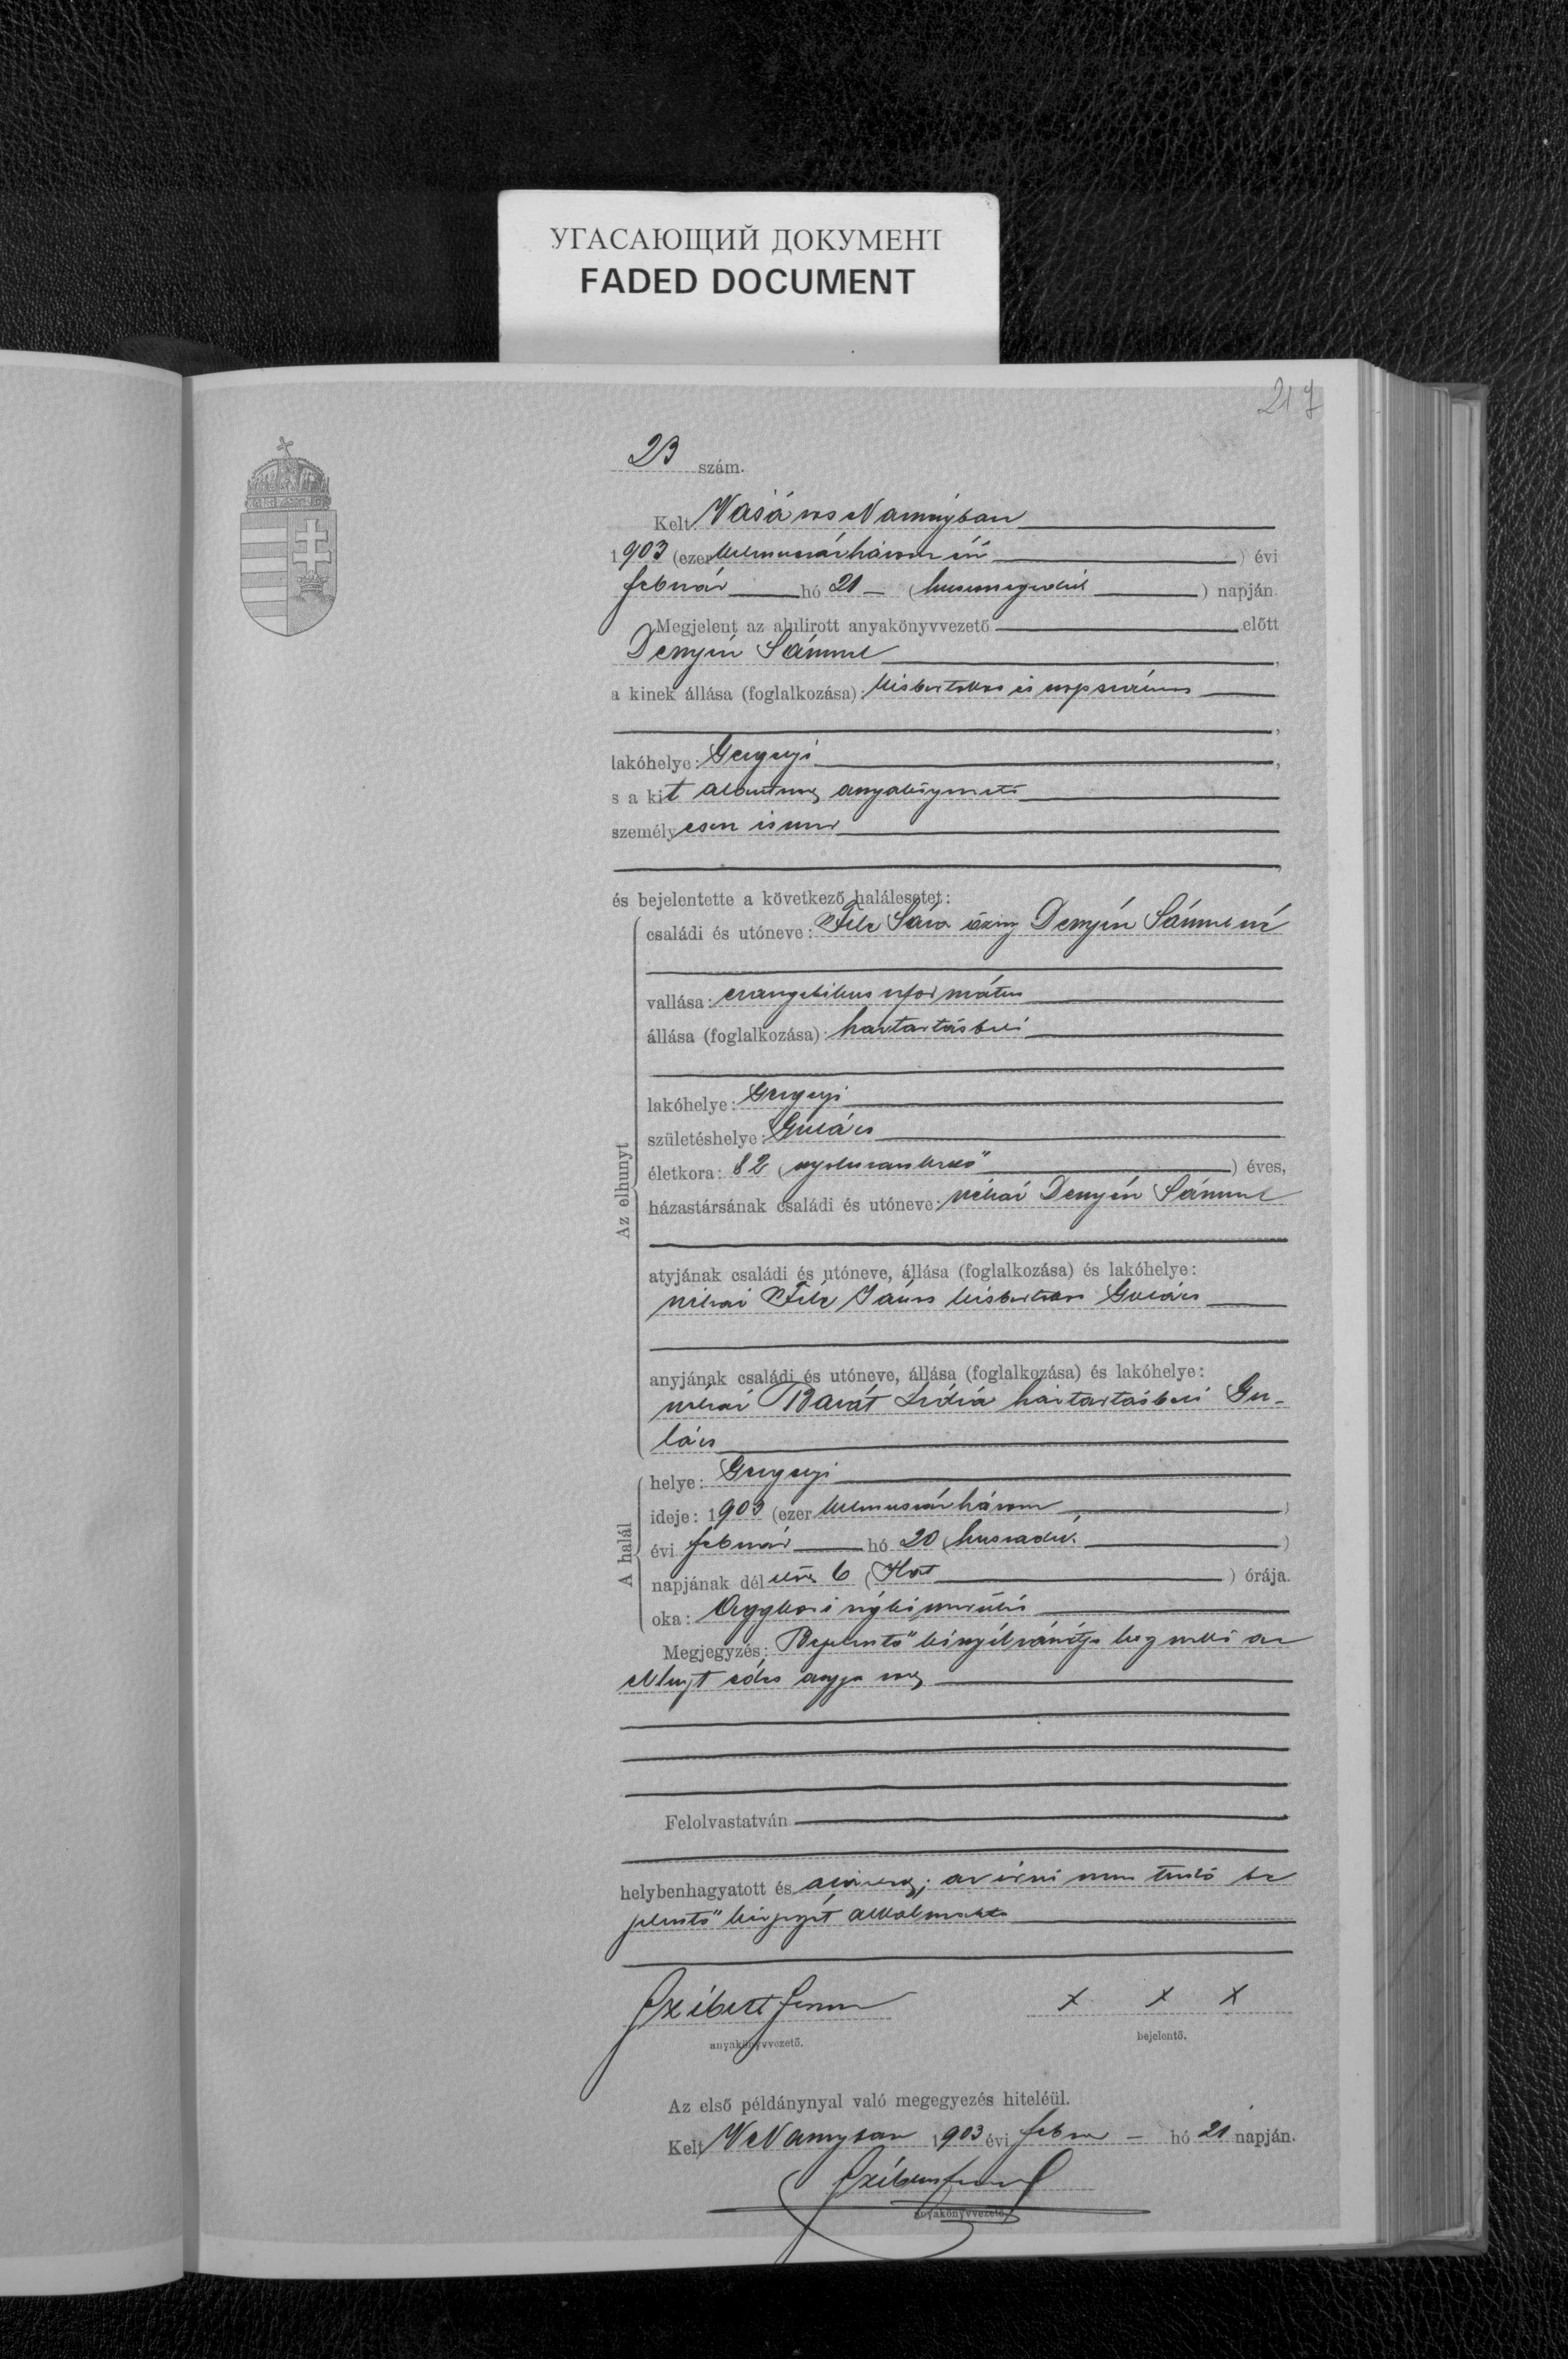 УГАСАЮЩИЙ ДОКУМЕНТ
FADED DOCUMENT
217
23 szám.
Kelt Vásáros Naményban
1903 (ezerkilencszázhárom ) évi
február hó 21 (huszonegyedik ) napján.
Megjelent az alulirott anyakönyvvezető előtt
Sámuel
a kinek állása (foglalkozása): kisbirtokos és napszámos
lakóhelye: Gergelyi
s a kit anyakönyvvezető
személyesen ismer
és bejelentette a következő halálesetet:
Az elhunyt
családi és utóneve: Sára özvegy Sámuelné
vallása: evangelikus református
állása (foglalkozása): háztartásbeli
lakóhelye: Gergelyi
születéshelye: Gulács
életkora: 82 (nyolcvankettő ) éves,
házastársának családi és utóneve: néhai Sámuel
atyjának családi és utóneve, állása (foglalkozása) és lakóhelye:
néhai János kisbirtokos Gulács
anyjának családi és utóneve, állása (foglalkozása) és lakóhelye:
néhai Barát Lidia háztartásbeli Gu-
lács
A halál
helye: Gergelyi
ideje: 1903 (ezerkilencszázhárom )
évi február hó 20 (huszadik )
napjának dél előtt 6 (Hat ) órája.
oka: Aggkori végkimerülés
Megjegyzés: Bejelentő kinyilvánitja hogy neki az
elhunyt édes anyja volt
Felolvastatván
helybenhagyatott és aláiratott; az irni nem tudó be
jelentő kézjegyét alkalmazta
x x x
anyakönyvvezető.
bejelentő.
Az első példánynyal való megegyezés hiteléül.
Kelt VNaményban 1903 évi febru hó 21 napján.
anyakönyvvezető.